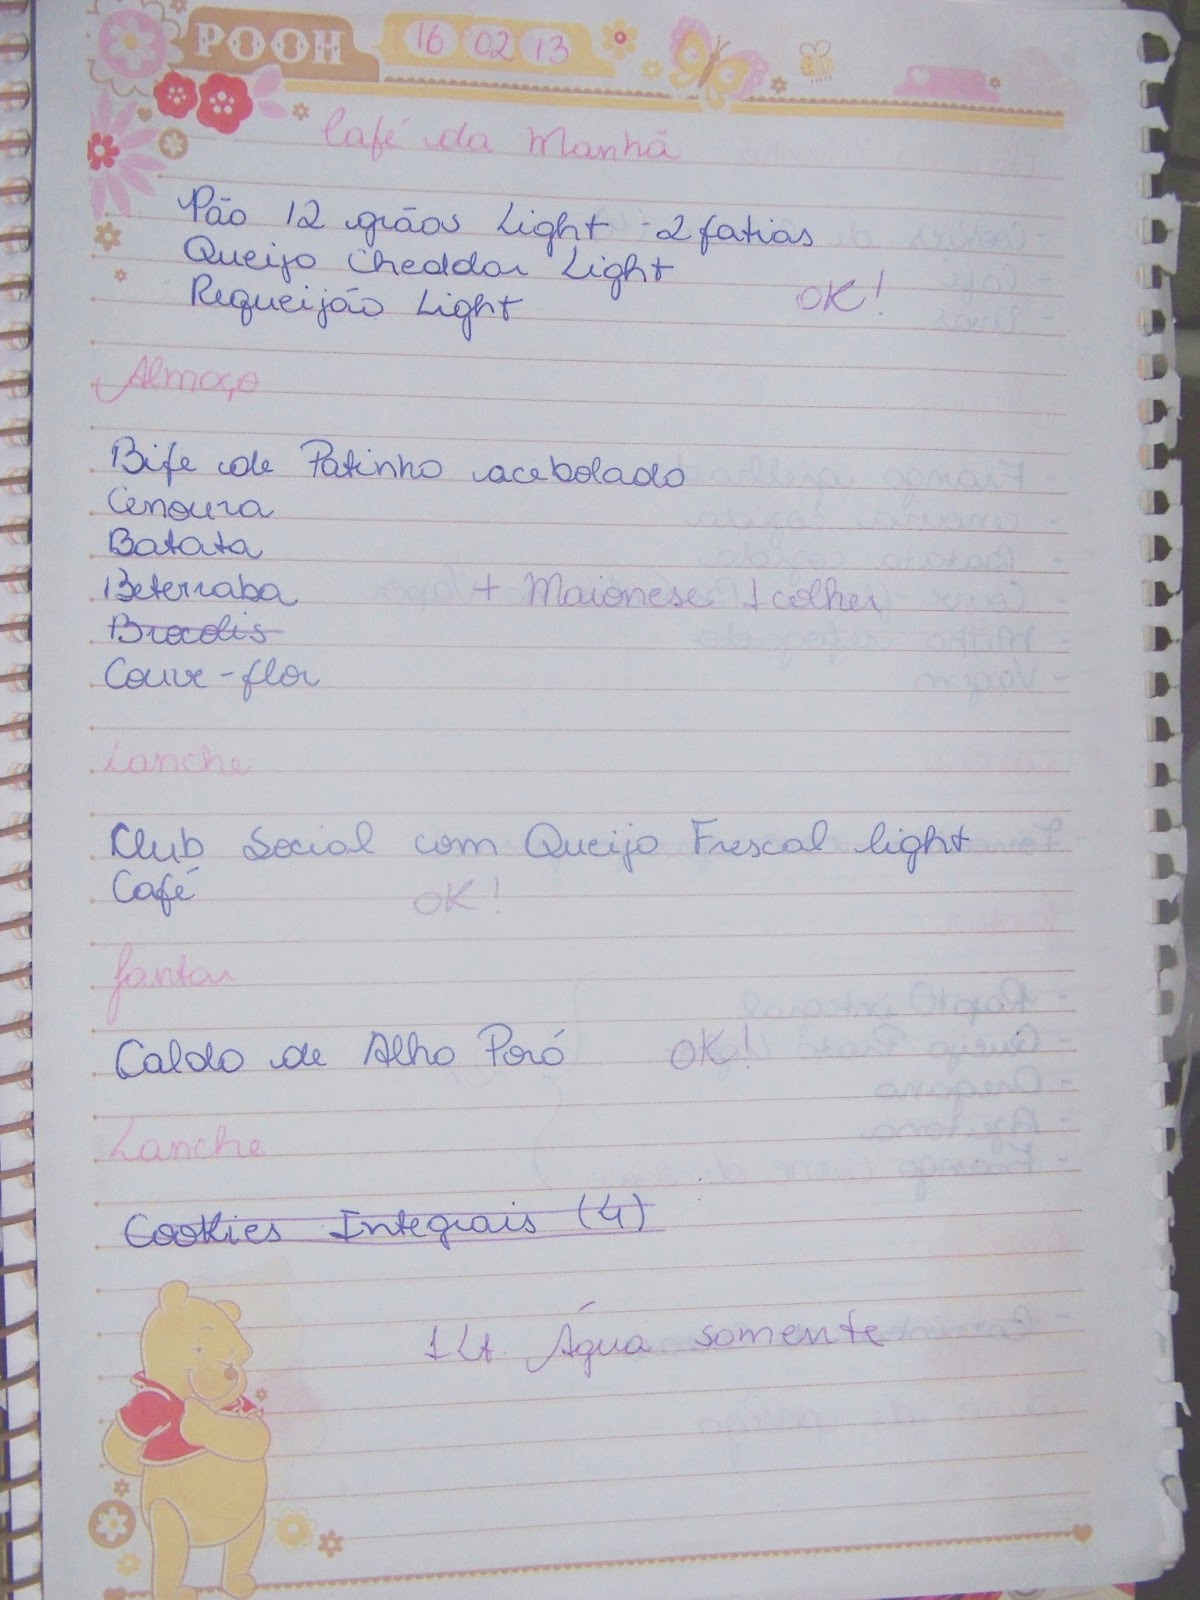 POOH 16 02 13
Café da Manhã
Pão 12 grãos Light - 2 fatias
Queijo Cheddar Light
Requeijão Light OK!
Almoço
Bife de Patinho acebolado
Cenoura
Batata
Beterraba + Maionese 1 colher
Brocolis
Couve-flor
Lanche
Club Social com Queijo Frescal light
Café OK!
Jantar
Caldo de Alho Poró OK!
Lanche
Cookies Integrais (4)
1 Lt. Água somente